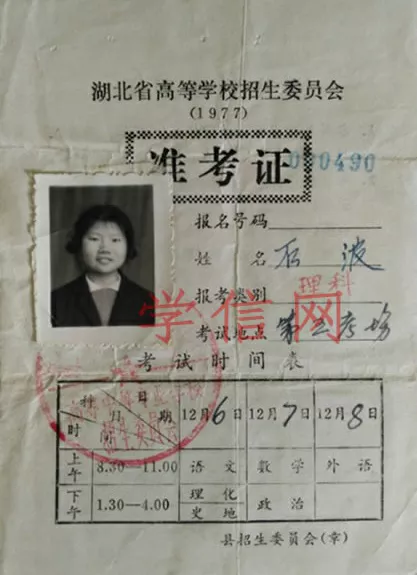 湖北省高等学校招生委员会
(1977)
准考证
000490
报名号码
姓名 石波
报考类别 理科
考试地点 第三考场
学信网
考试时间表
日期
时间
12月6日 12月7日 12月8日
上午 8.30—11.00 语文 数学 外语
下午 1.30—4.00 理化 史地 政治
县招生委员会(章)